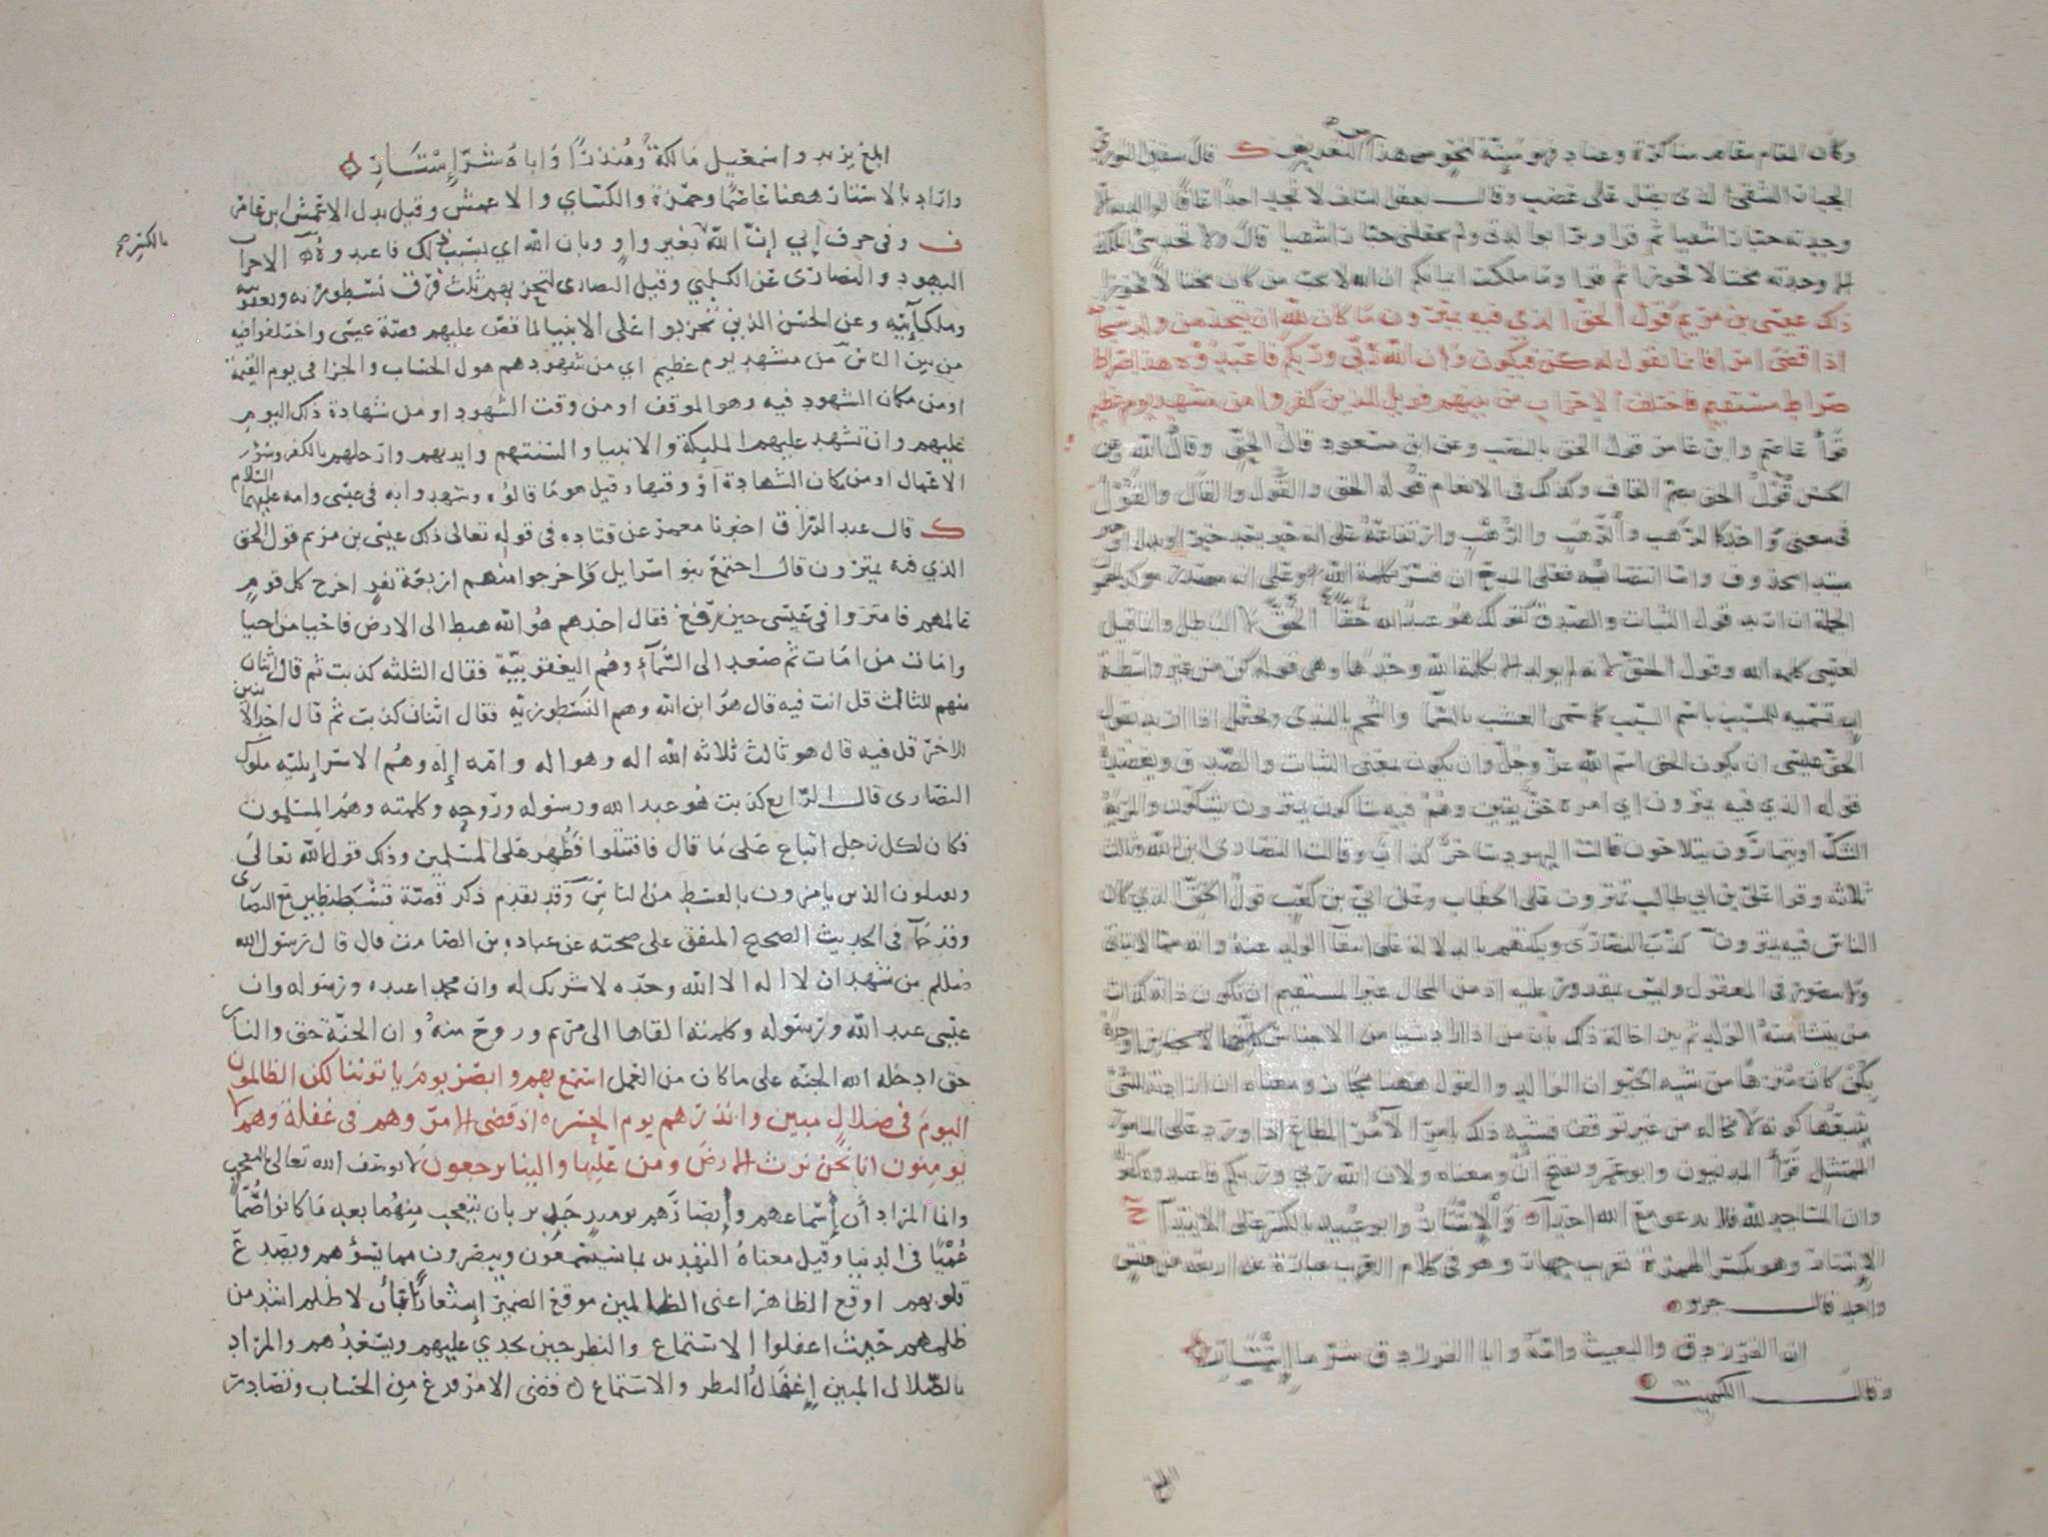 وكان المقام مقام مناكرة وعناد فهو مئنة لنحو من هذا التعريض ك قال سفيان الثوري
الجبار الشقي الذي يقتل على غضب وقال بعض السلف لا تجد احدا عاقا لوالديه الا
وجدته جبارا شقيا ثم قرا وبرا بوالدتي ولم يجعلني جبارا شقيا قال ولا تجد سيئ الملكة
الا وجدته مختالا فخورا ثم قرا وما ملكت ايمانكم ان الله لا يحب من كان مختالا فخورا
ذلك عيسى بن مريم قول الحق الذي فيه يمترون ما كان لله ان يتخذ من ولد سبحانه
اذا قضى امرا فانما يقول له كن فيكون وان الله ربي وربكم فاعبدوه هذا صراط
صراط مستقيم فاختلف الاحزاب من بينهم فويل للذين كفروا من مشهد يوم عظيم
قرأ عاصم وابن عامر قول الحق بالنصب وعن ابن مسعود قال الحق وقال الله وعن
الحسن قول الحق بضم القاف وكذلك في الانعام قوله الحق والقول والقال والقول
في معنى واحد كالرهب والرهب والرهب وارتفاعه على انه خبر بعد خبر او بدل او خبر
مبتدا محذوف واما انتصابه فعلى المدح ان فسر بكلمة الله وعلى انه مصدر مؤكد لمضمون
الجملة ان اريد قول الثبات والصدق كقولك هو عبد الله حقا الحق لا الباطل وانما قيل
لعيسى كلمة الله وقول الحق لانه لم يولد الا بكلمة الله وحدها وهي قوله كن من غير واسطة
اب تسمية للمسبب باسم السبب كما سمى العشب بالسما والشحم بالندى ويحتمل اذا اريد بقول
الحق عيسى ان يكون الحق اسم الله عز وجل وان يكون بمعنى الثبات والصدق ويعضده
قوله الذي فيه يمترون اي امره حق يقين وهم فيه شاكون يمترون يشكون والمرية
الشك او يتمارون يتلاحون قالت اليهود ساحر كذاب وقالت النصارى ابن الله وثالث
ثلاثه وقرا علي بن ابي طالب تمترون على الخطاب وعن ابي بن كعب قول الحق الذي كان
الناس فيه يمترون كذب النصارى وبكتهم بالدلالة على انتفا الولد عنه وانه مما لا يتاتى
ولا يتصور في المعقول وليس بمقدور عليه اذ من المحال غير المستقيم ان تكون ذاته كذات
من ينشا منه الولد ثم بين احالة ذلك بان من اذا اراد شيا من الاجناس كلها اوجده
بكن كان منزها من شبه الحيوان الوالد والقول ههنا مجاز ومعناه ان ارادته للشي
يتبعها كونه لا محالة من غير توقف فشبه ذلك بامر الآمر المطاع اذا ورد على المامور
الممتثل قرأ المدنيون وابو عمرو بفتح ان ومعناه ولان الله ربي وربكم فاعبدوه كقوله
وان المساجد لله فلا تدعو مع الله احدا والاستار وابو عبيد بالكسر على الابتدا
الاستار وهو بكسر الهمزة تعريب جهار وهو في كلام العرب عبارة عن اربعة من جنس
واحد قال جرير
ان الفرزدق والبعيث وامه وابا الفرزدق شر ما استار
وقال الكميت
ابلغ يزيد واسمعيل مالكة ومنذرا واباه شر استار
واراد بالاستار ههنا عاصما وحمزة والكساي والاعمش وقيل بدل الاعمش ابن عامر
ف وفي حرف ابي ان الله بغير واو وبان الله اي بسبب ذلك فاعبدوه الاحزاب
بالكسر
اليهود والنصارى عن الكلبي وقيل النصارى لتحزبهم ثلث فرق نسطورية ويعقوبية
وملكانية وعن الحسن الذين تحزبوا على الانبيا لما قص عليهم قصة عيسى واختلفوا فيه
من بين الناس من مشهد يوم عظيم اي من شهودهم هول الحساب والجزا في يوم القيمة
او من مكان الشهود فيه وهو الموقف او من وقت الشهود او من شهادة ذلك اليوم
عليهم وان تشهد عليهم المليكة والانبيا والسنتهم وايديهم وارجلهم بالكفر وسوء
الاعمال او من مكان الشهادة او وقتها وقيل هو ما قالوه وشهدوا به في عيسى وامه عليهما السلام
ك قال عبد الرزاق اخبرنا معمر عن قتاده في قوله تعالى ذلك عيسى بن مريم قول الحق
الذي فيه يمترون قال اجتمع بنو اسرايل فاخرجوا منهم اربعة نفر اخرج كل قوم
عالمهم فامتروا في عيسى حين رفع فقال احدهم هو الله هبط الى الارض فاحيا من احيا
وامات من امات ثم صعد الى السماء وهم اليعقوبية فقال الثلثه كذبت ثم قال اثنان
منهم للثالث قل انت فيه قال هو ابن الله وهم النسطورية فقال اثنان كذبت ثم قال احد الاثنين
للاخر قل فيه قال هو ثالث ثلاثه الله اله وهو اله وامه اله وهم الاسرايليه ملوك
النصارى قال الرابع كذبت هو عبد الله ورسوله وروحه وكلمته وهم المسلمون
فكان لكل رجل اتباع على ما قال فاقتتلوا فظهر على المسلمين وذلك قول الله تعالى
ويقتلون الذين يامرون بالقسط من الناس وقد تقدم ذكر قصة قسطنطين مع النصارى
وقد جآ في الحديث الصحيح المتفق على صحته عن عباده بن الصامت قال قال رسول الله
صلعم من شهد ان لا اله الا الله وحده لا شريك له وان محمدا عبده ورسوله وان
عيسى عبد الله ورسوله وكلمته القاها الى مريم وروح منه وان الجنة حق والنار
حق ادخله الله الجنه على ما كان من العمل اسمع بهم وابصر يوم ياتوننا لكن الظالمون
اليوم في ضلال مبين وانذرهم يوم الحسره اذ قضي الامر وهم في غفلة وهم لا
يومنون انا نحن نرث الارض ومن عليها والينا يرجعون لا يوصف الله تعالى بالتعجب
وانما المراد ان اسماعهم وابصارهم يوميذ جدير بان يتعجب منهما بعد ما كانوا صما
عميا في الدنيا وقيل معناه التهديد بما سيسمعون ويبصرون مما يسؤهم ويصدع
قلوبهم اوقع الظاهر اعني الظالمين موقع الضمير اشعارا بان لا ظلم اشد من
ظلمهم حيث اغفلوا الاستماع والنظر حين يجدي عليهم ويسعدهم والمراد
بالضلال المبين اغفال النظر والاستماع قضي الامر فرغ من الحساب وتصادر